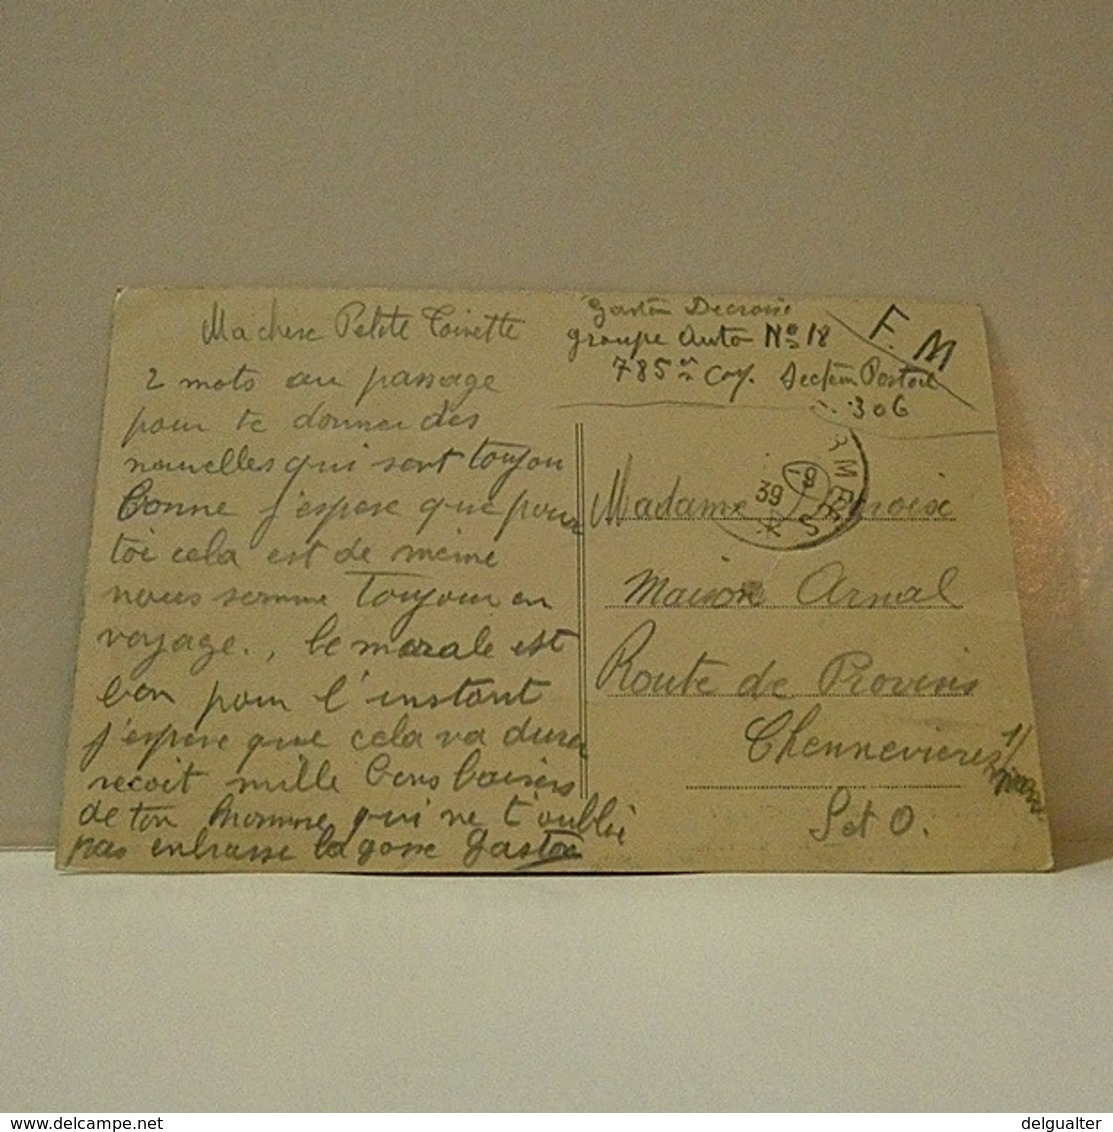 Ma chere Petite Toinette
2 mots au passage
pour te donner des
nouvelles qui sont toujou
bonne j'espere que pour
toi cela est de meme
nous somme toujour en
voyage., le morale est
bon pour l'instant
j'espere que cela va durer
recoit mille bons baisers
de ton homme qui ne t'oublie
pas enbrasse la gosse Gaston
Gaston Decroix
groupe Auto No 18
785 Coy. Secteur Postal
306
F.M
39 -9
Madame Decroix
Maison Arnal
Route de Provins
Chennevieres s/
S et O.
delgualter